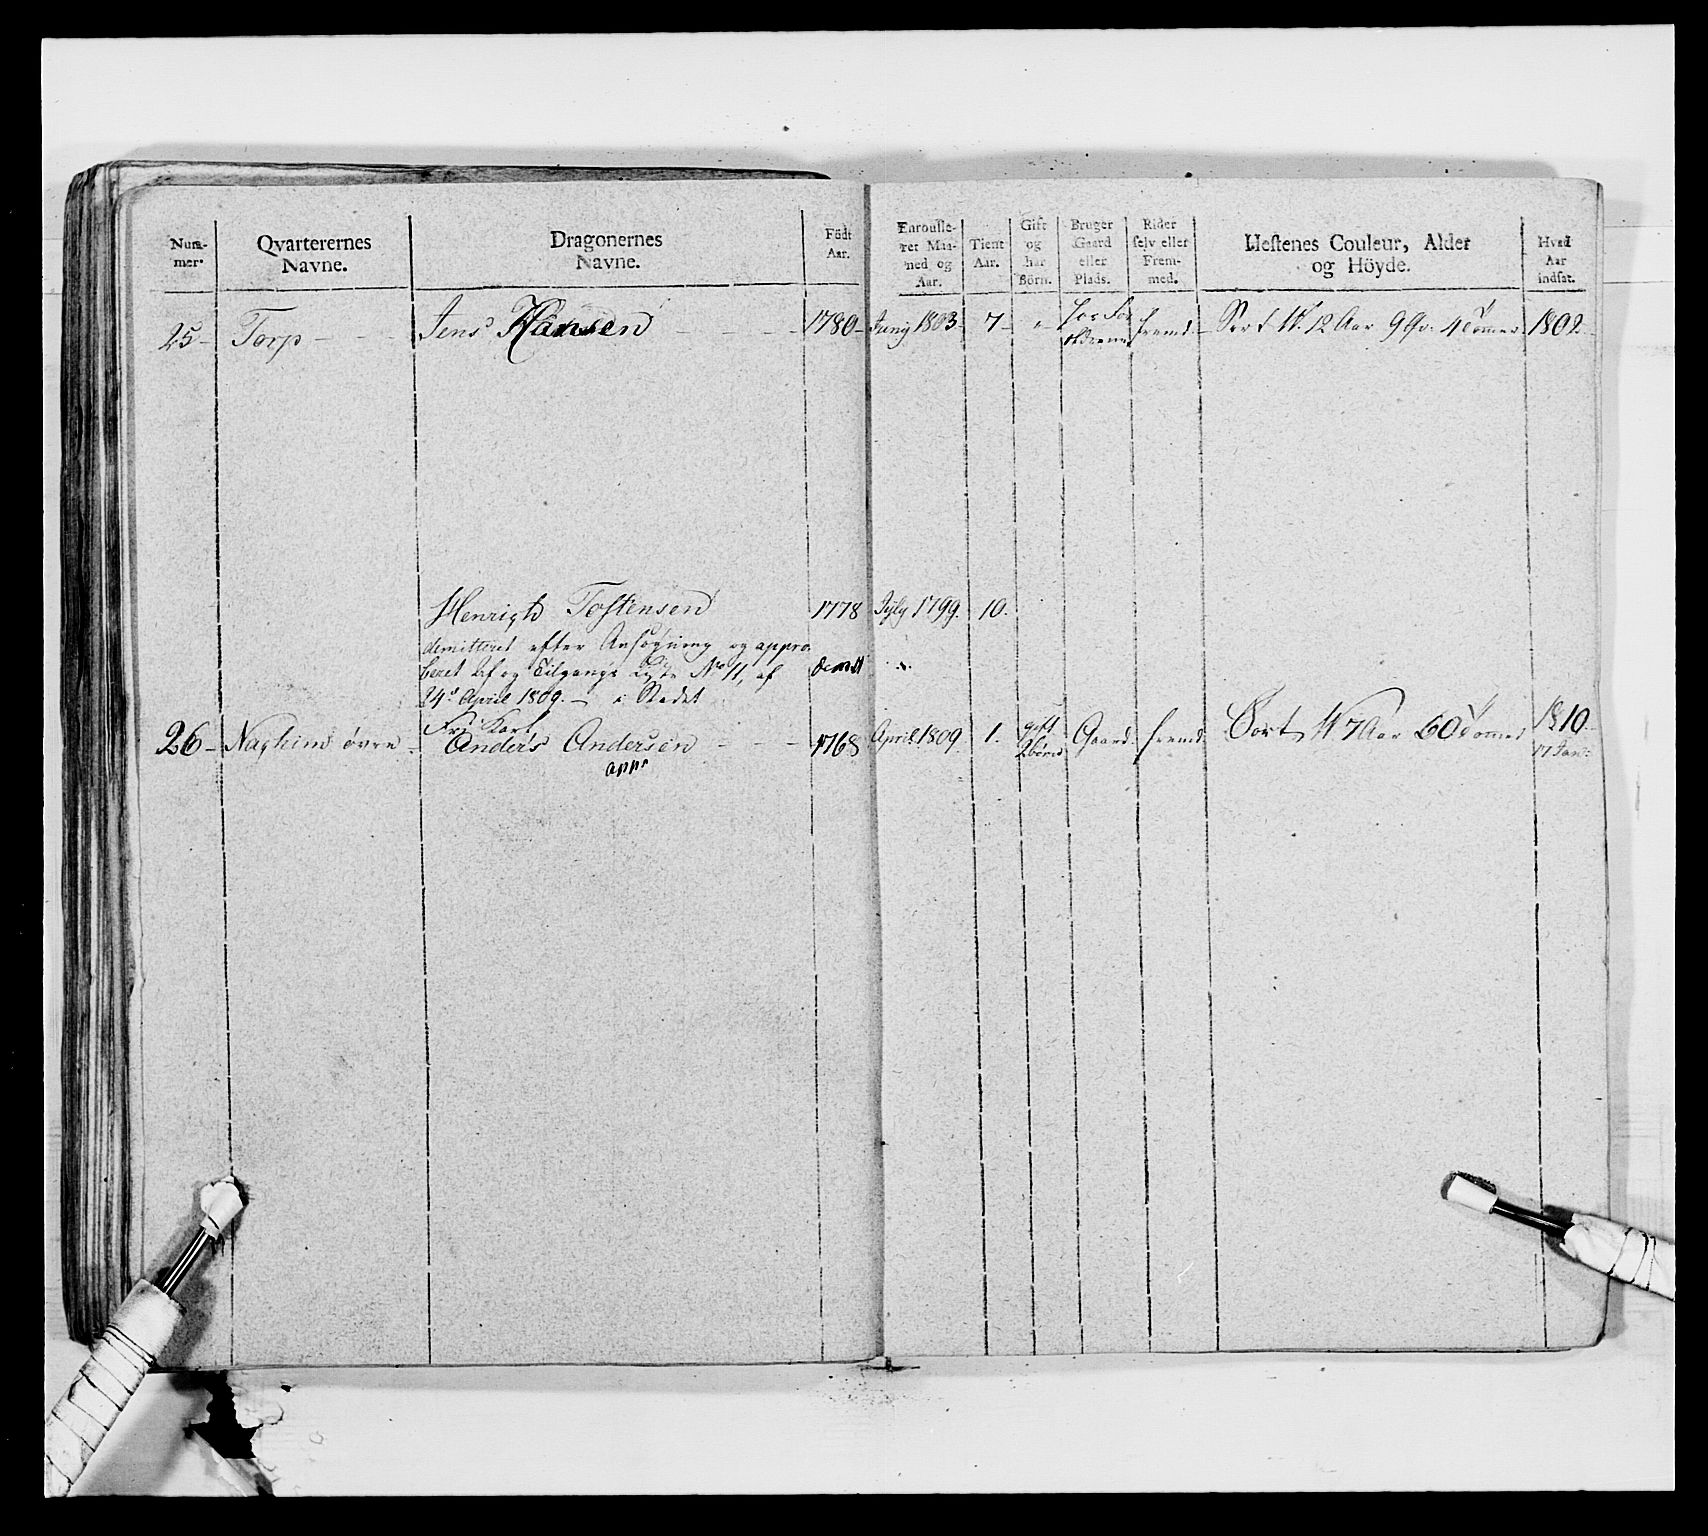 Num-
mer.
Qvarterernes
Navne.
Dragonernes
Navne.
Födt
Aar.
Enroulle-
ret Maa-
ned og
Aar.
Tient
Aar.
Gift
og
har
Börn.
Bruger
Gaard
eller
Plads.
Rider
selv eller
Frem-
med.
Hestenes Couleur, Alder
og Höyde.
Hvad
Aar
indsat.
25 - Torp - - - Jens Hansen - - - - 1780 - Juny 1803. 7 - " hos For
ældrene fremd. Sort W. 12 Aar 9 Qv. 4 Tommer 1802.
Henrich Tostensen 1778 July 1799. 10.
demitteret efter Ansøgning og appro
beret Af og Tilgangs Liste No 11, af
24d April 1809. - i Stedet
26 - øvre - Fri Karl
Anders Andersen - - - 1768 April 1809. 1. gift
2 børn Gaard. fremd. Sort W 7 Aar 60 Tommer 1810
17 Jan:
appr